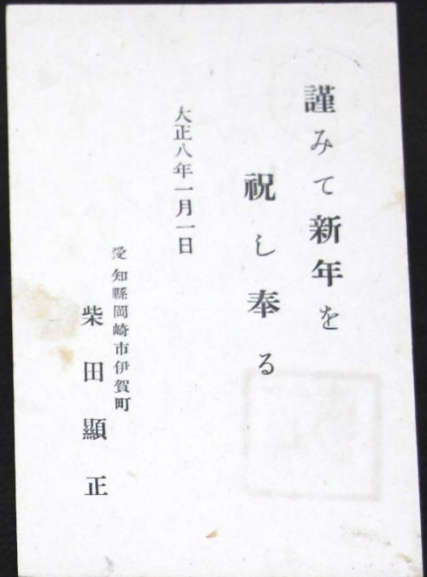 謹みて新年を
祝し奉る
大正八年一月一日
愛知縣岡崎市伊賀町
柴田顯正